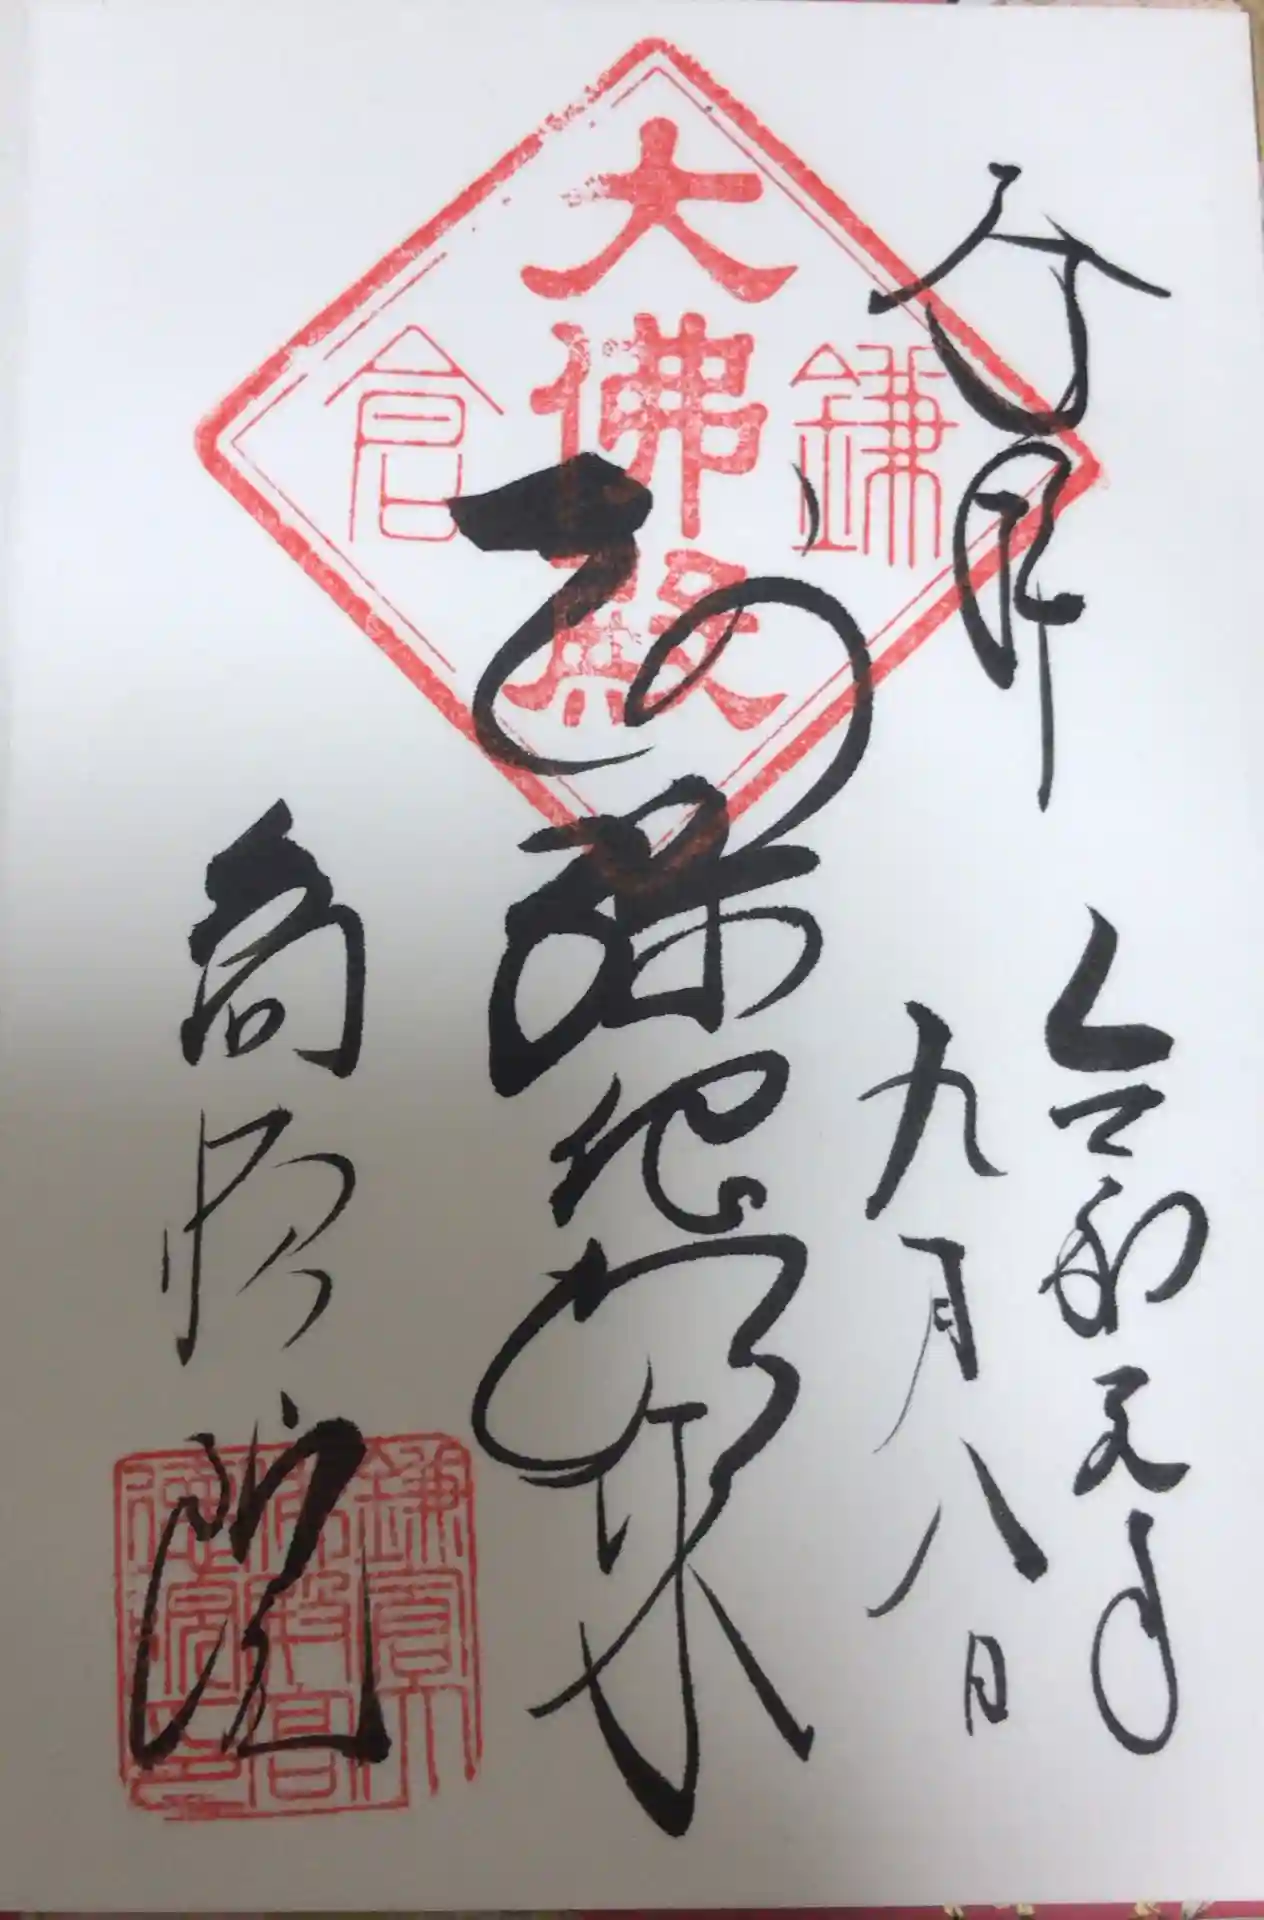 奉拝
令和元年
九月八日
鎌倉
大佛殿
阿弥陀如来
高徳院
鎌倉大
佛殿高
德院印